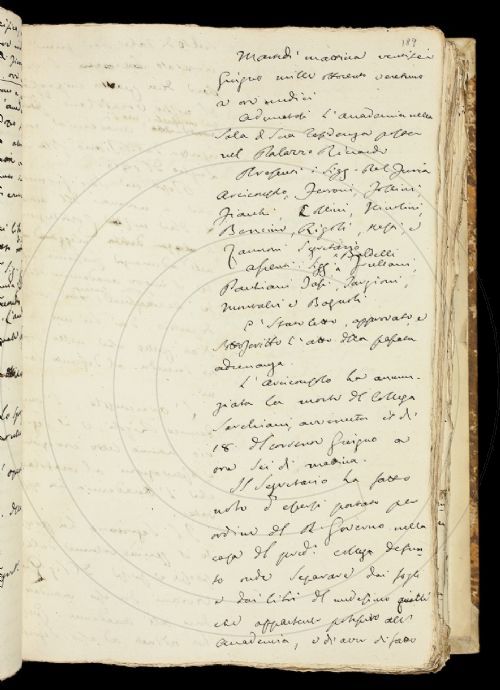 189
Martedì mattina ventisei
Giugno mille ottocento ventuno
a ore undici
Adunatasi l'Accademia nella
Sala di Sua residenza posta
nel Palazzo Riccardi
Presenti i Sigg. Del Furia
Arciconsolo, Ferroni, Follini,
Fiacchi, Collini, Niccolini,
Bencini, Rigoli, e
Zannoni Segretario
Assenti i Sigg. Baldelli
Sarchiani, Targioni,
e Bagnoli
È stato letto, approvato, e
sottoscritto l'atto della passata
adunanza.
L'Arciconsolo ha annun-
ziata la morte del Collega
Sarchiani, avvenuta il dì
18. del corrente Giugno a
ore sei di mattina.
Il Segretario ha fatto
noto d'essersi portato per
ordine del R. Governo nella
casa del pred. collega defun
to onde separare dai fogli
e dai libri del medesimo quelli
che appartener potessero all'
Accademia, e di aver di fatto